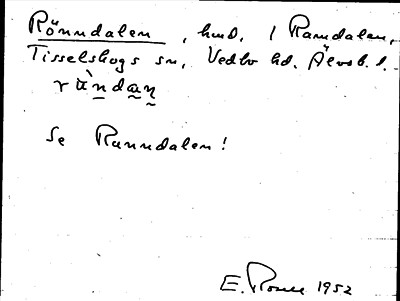 Rönndalen, hmd, i Ramdalen,
Tisselskogs sn, Vedbo hd. Älvsb. l.
rùndan
Se Runndalen!
E. 1952